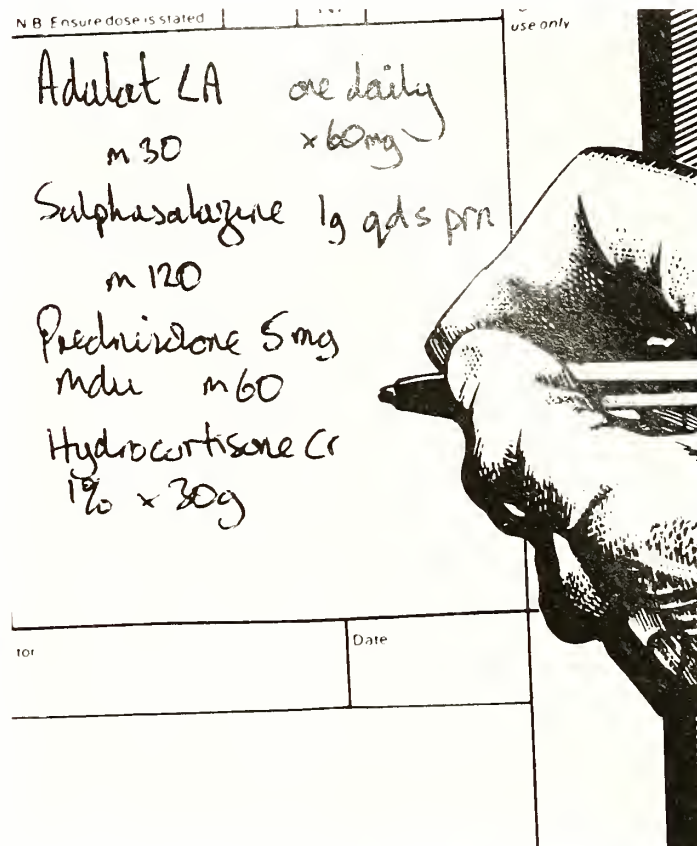 N B Ensure dose is stated
use only
Adalat LA one daily
m 30 x 60mg
Sulphasalazine 1g qds prn
m 120
Prednisolone 5mg
mdu m 60
Hydrocortisone Cr
1% x 30g
Date